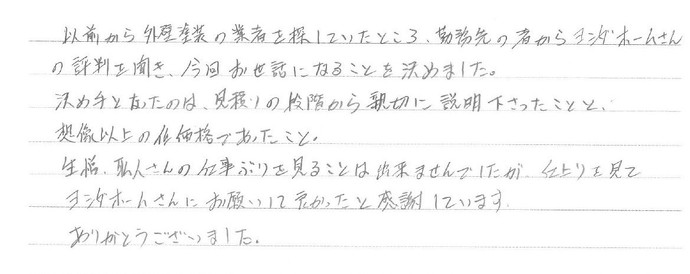 以前から外壁塗装の業者を探していたところ、勤務先の者からヨシダホームさん
の評判を聞き、今回お世話になることを決めました。
決め手となったのは、見積りの段階から親切に説明下さったことと、
想像以上の低価格であったこと。
生憎、職人さんの仕事ぶりを見ることは出来ませんでしたが、仕上りを見て
ヨシダホームさんにお願いして良かったと感謝しています。
ありがとうございました。